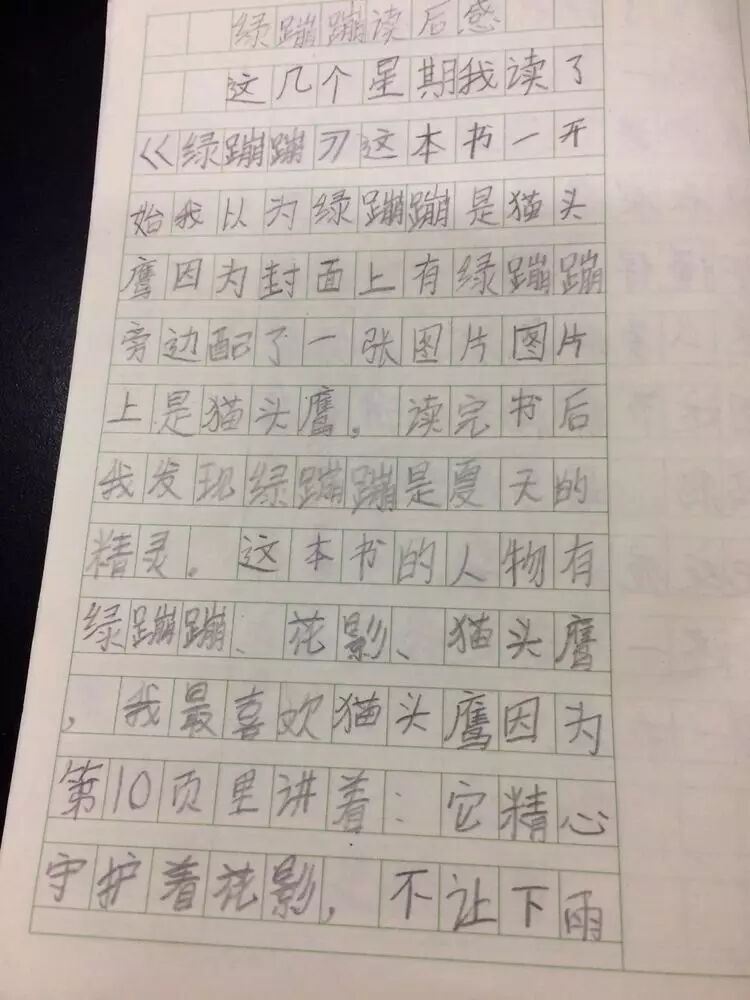 绿蹦蹦读后感
这几个星期我读了
《绿蹦蹦》这本书一开
始我以为绿蹦蹦是猫头
鹰因为封面上有绿蹦蹦
旁边配了一张图片图片
上是猫头鹰。读完书后
我发现绿蹦蹦是夏天的
精灵。这本书的人物有
绿蹦蹦、花影、猫头鹰
，我最喜欢猫头鹰因为
第10页里讲着：它精心
守护着花影，不让下雨